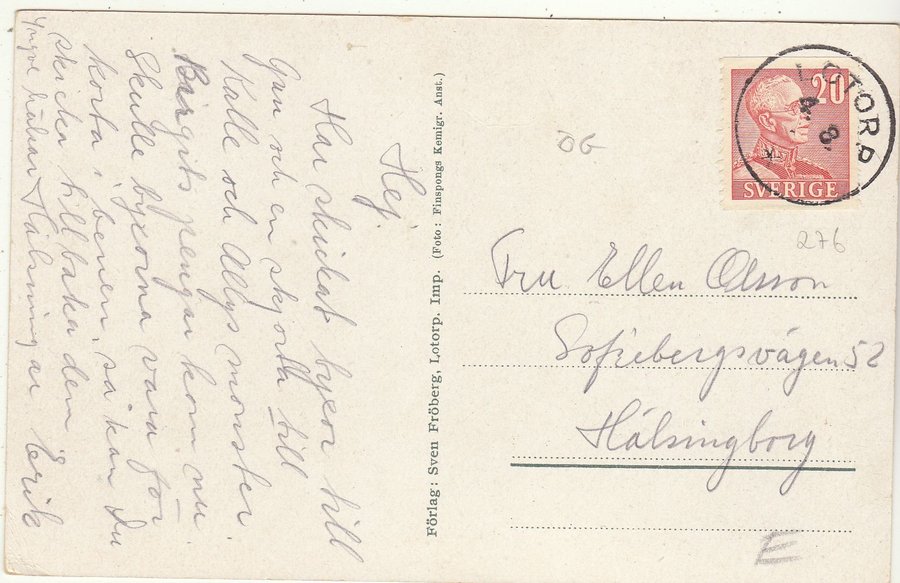 Hej.
Har skickat byxor till
Gun och en skjorta till
Kalle och Allys mönster
Birgits pengar kom nu.
Skulle byxorna vara för
korta i benen, så kan Du
skicka tillbaka den
Hälsningar Erik
Förlag: Sven Fröberg, Lotorp. Imp. (Foto: Finspongs Kemigr. Anst.)
OG
20
SVERIGE
LOTORP
4. 8.
276
Fru Ellen Olsson
Sofiebergsvägen 52
Hälsingborg
E